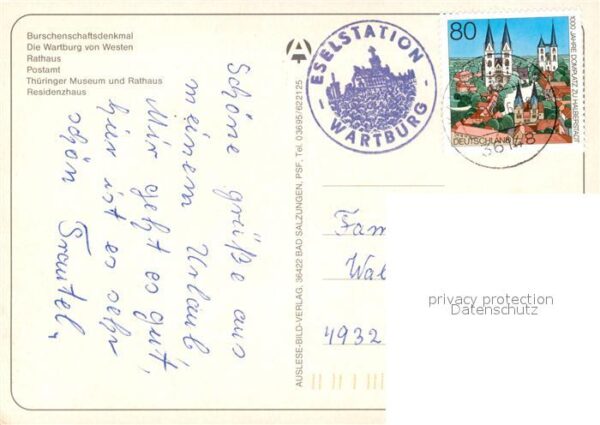 Burschenschaftsdenkmal
Die Wartburg von Westen
Rathaus
Postamt
Thüringer Museum und Rathaus
Residenzhaus
Schöne grüße aus
meinem Urlaub,
Mir geht es gut,
hier ist es sehr
schön
Trautel,
AUSLESE-BILD-VERLAG, 36422 BAD SALZUNGEN, PSF, Tel. 03695/622125
ESELSTATION
WARTBURG
80
1000 JAHRE DOMPLATZ ZU HALBERSTADT
DEUTSCHLAND
Fam
Wal
4932
privacy protection
Datenschutz